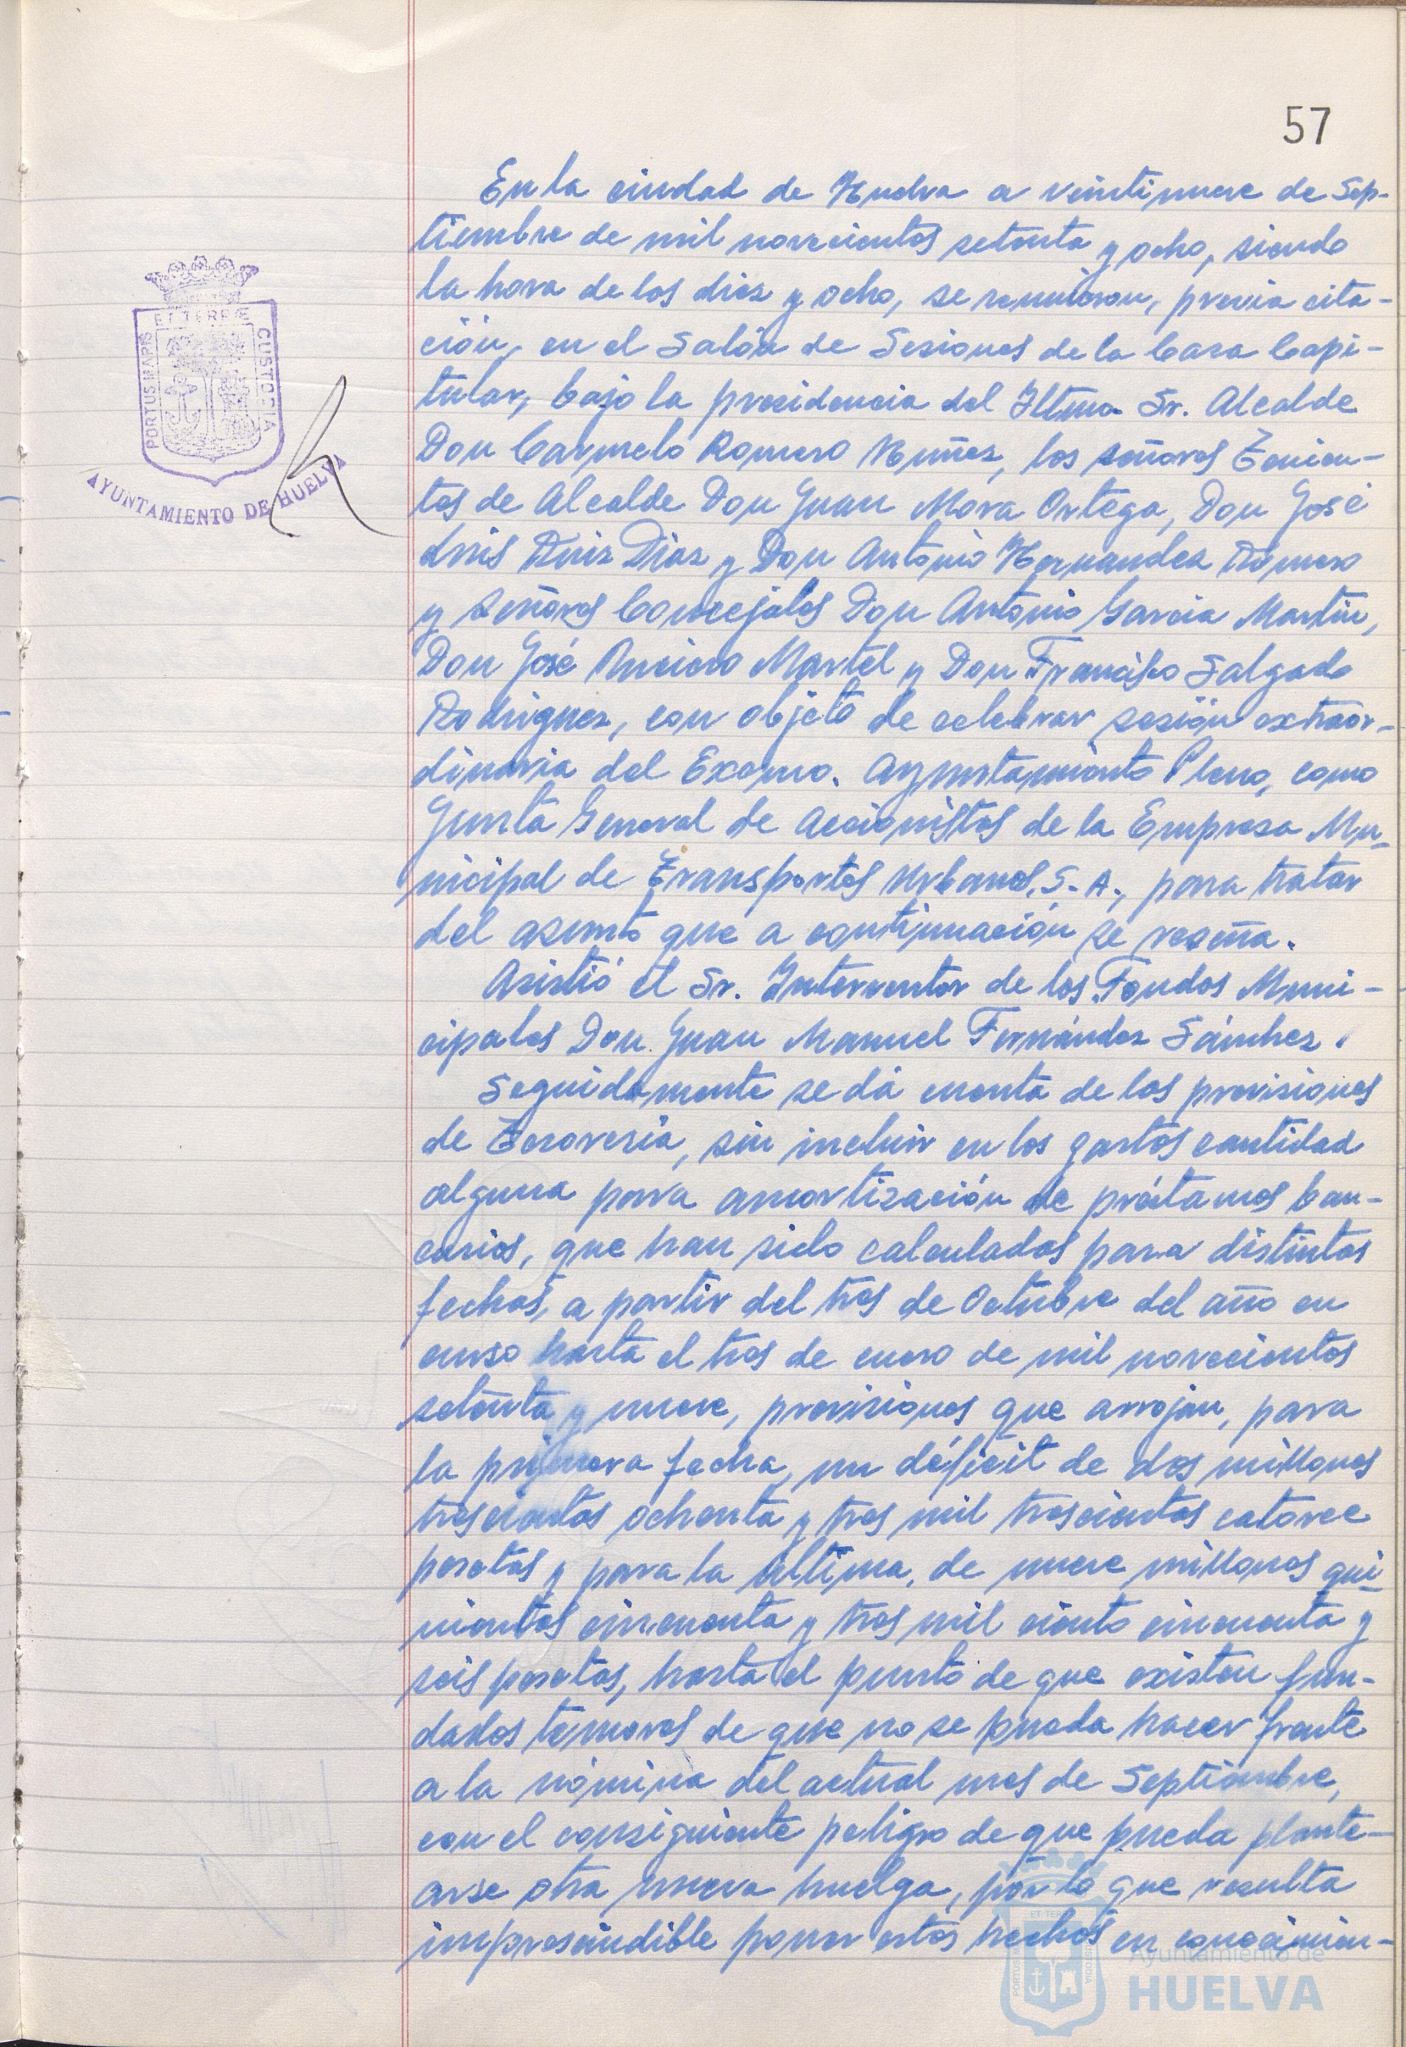 57
En la ciudad de Huelva a veintinueve de Sep-
tiembre de mil novecientos setenta y ocho, siendo
la hora de las diez y ocho, se reunieron, previa cita-
ción, en el Salón de Sesiones de la Casa Capi-
tular, bajo la presidencia del Iltmo Sr. Alcalde
Don Carmelo Romero Núñez, los señores Tenien-
tes de Alcalde Don Juan Mora Ortega, Don José
Luis Ruiz Díaz y Don Antonio Hernandez Romero
y señores Concejales Don Antonio Garcia Martín,
Don José Martel y Don Francisco Salgado
Rodriguez, con objeto de celebrar sesión extraor-
dinaria del Excmo. Ayuntamiento Pleno, como
Junta General de Accionistas de la Empresa Mu-
nicipal de Transportes Urbanos, S.A., para tratar
del asunto que a continuación se reseña.
Asistió el Sr. Interventor de los Fondos Muni-
cipales Don Juan Manuel Fernández Sánchez.
Seguidamente se dá cuenta de las previsiones
de Tesorería, sin incluir en los gastos cantidad
alguna para amortización de préstamos ban-
carios, que han sido calculadas para distintas
fechas, a partir del tres de Octubre del año en
curso hasta el tres de enero de mil novecientos
setenta y nueve, previsiones que arrojan, para
la primera fecha, un déficit de dos millones
trescientas ochenta y tres mil trescientas catorce
pesetas y para la última, de nueve millones qui-
nientas cincuenta y tres mil ciento cincuenta y
seis pesetas, hasta el punto de que existen fun-
dados temores de que no se pueda hacer frente
a la nómina del actual mes de Septiembre,
con el consiguiente peligro de que pueda plante-
arse otra nueva huelga, por lo que resulta
imprescindible poner estos hechos en conocimien-
PORTUS MARIS
ET TERRÆ
CUSTODIA
AYUNTAMIENTO DE HUELVA
Ayuntamiento de
HUELVA